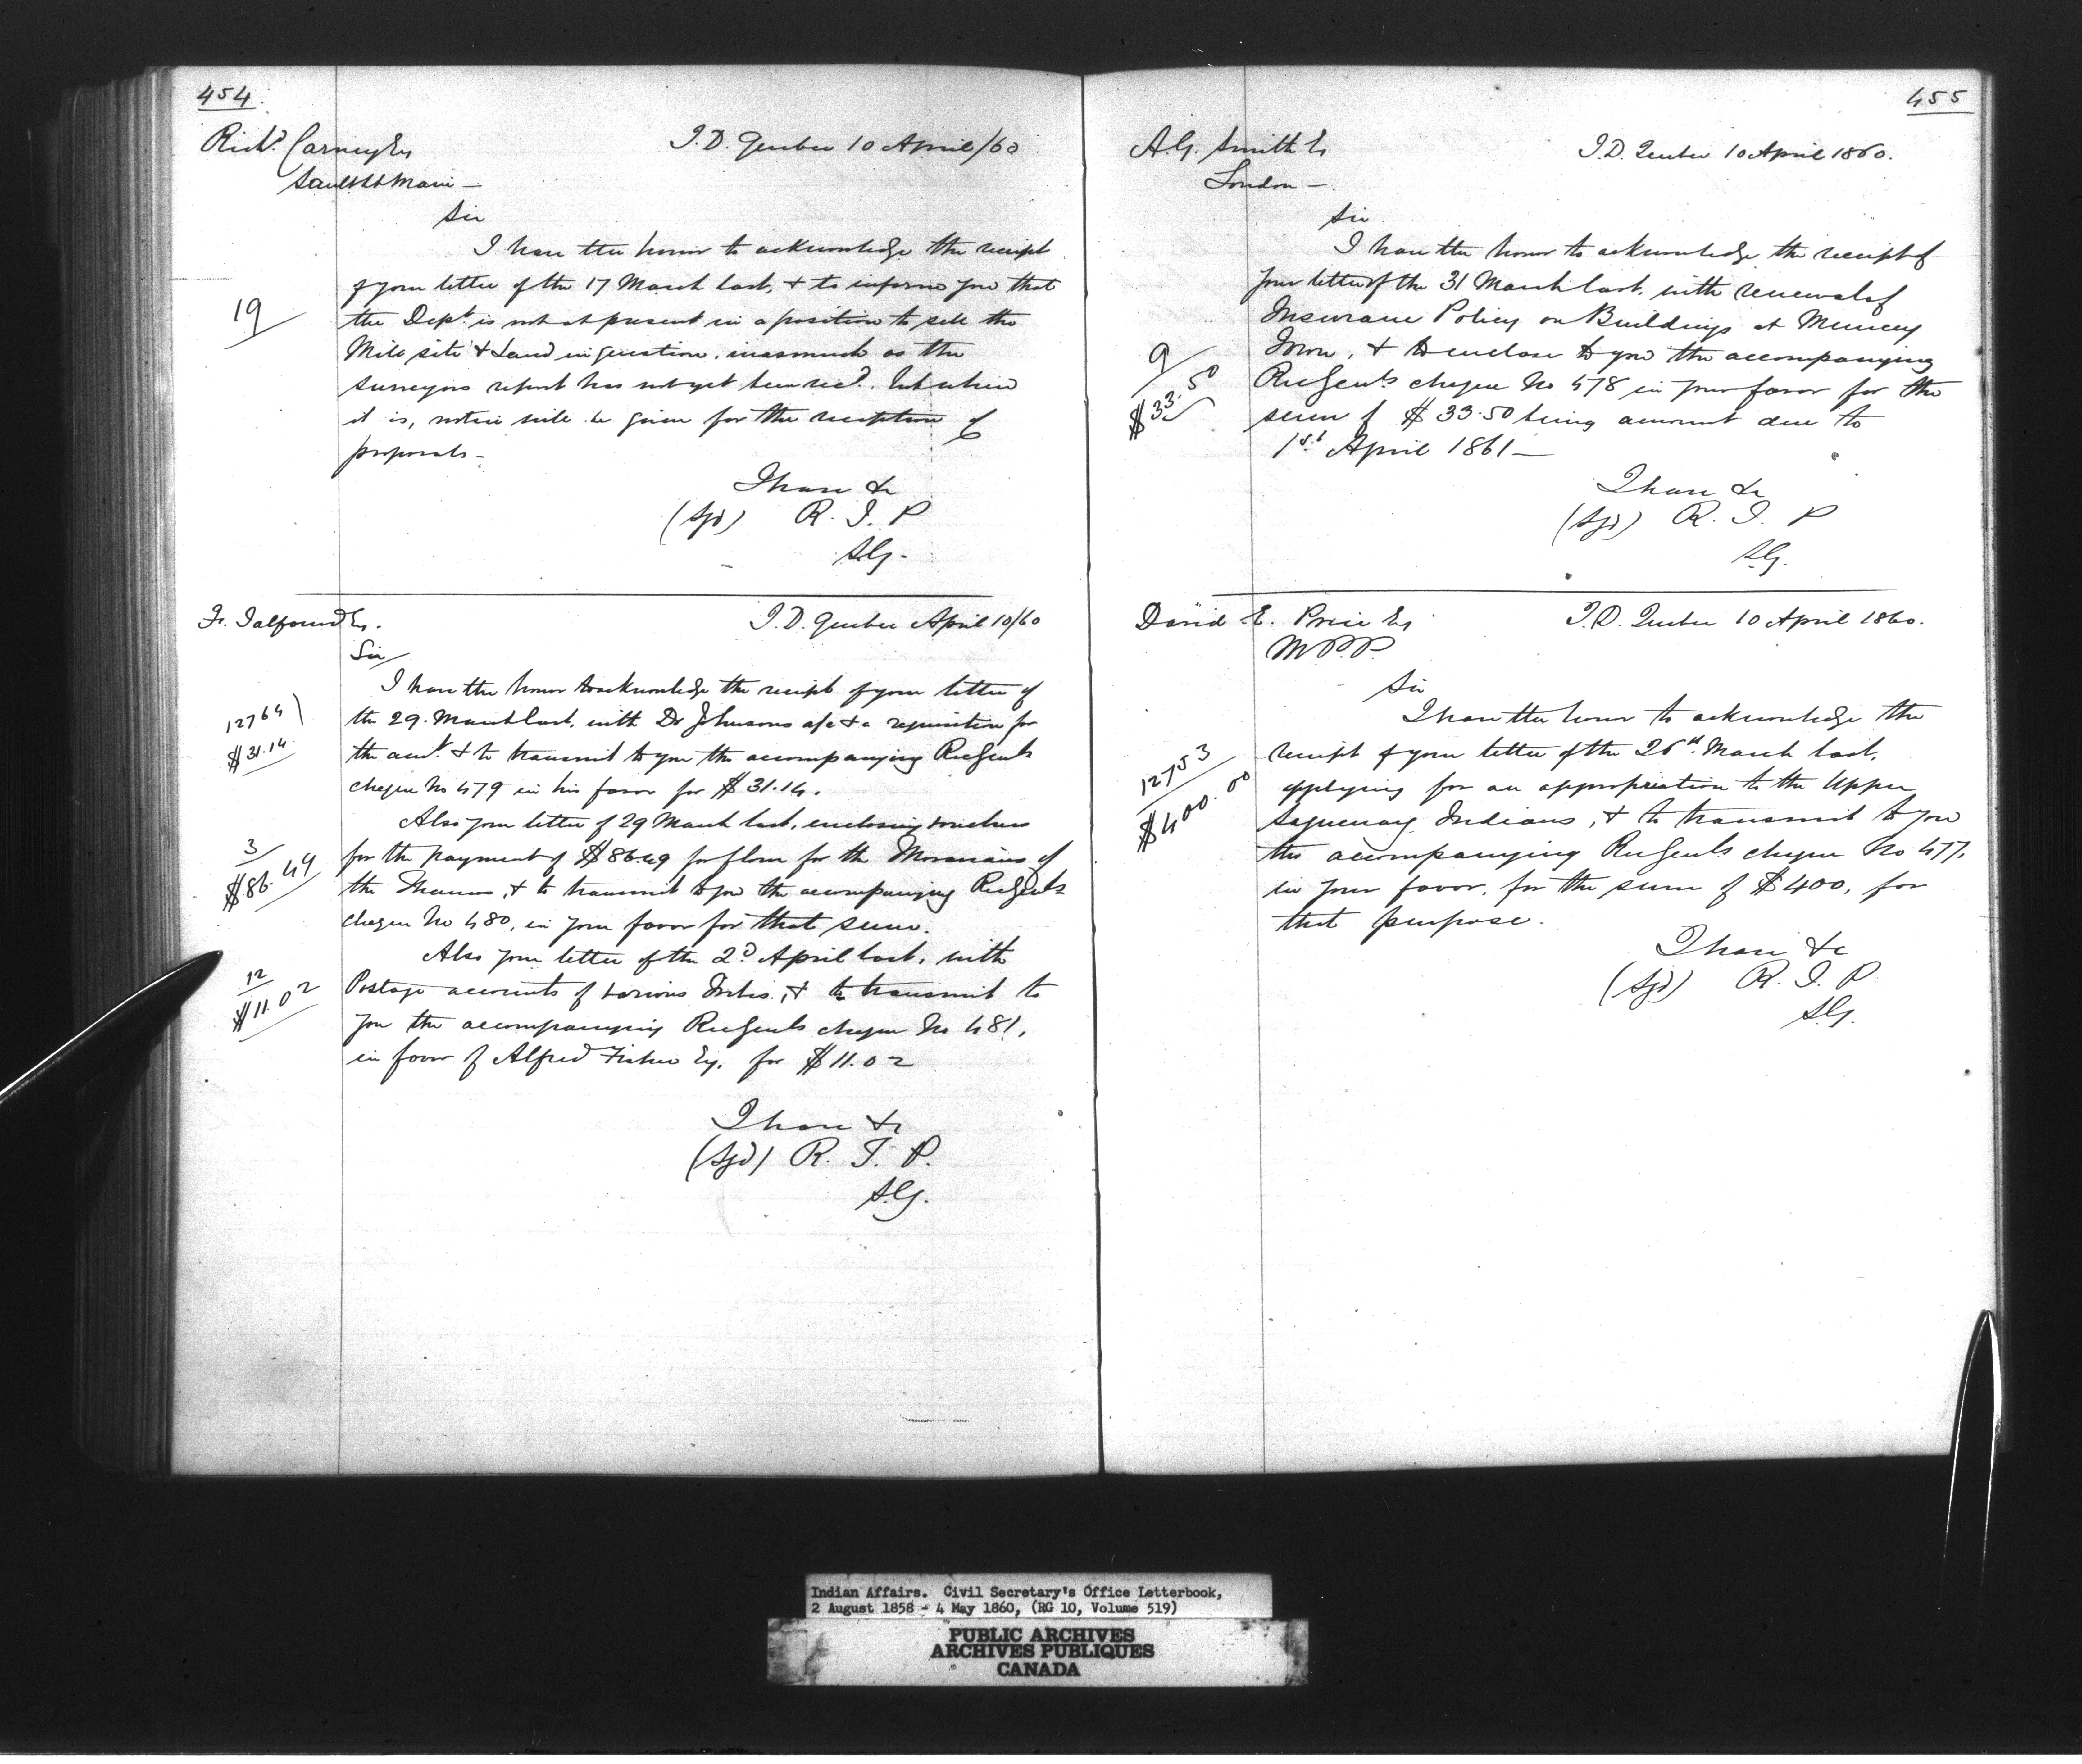 454
Richd. Carney Esq
Sault St Marie —
I.D. Quebec 10 April/60
Sir
I have the honor to acknowledge the receipt
of your letter of the 17 March last, & to inform you that
19
the Dept. is not at present in a position to sell the
Mill site & Land in question, inasmuch as the
surveyors report has not yet been recd. but when
it is, notice will be given for the reception of
proposals —
I have &c
(Sgd) R. T. P
S.G.
Fr. Talfourd Esq.
I.D. Quebec April 10/60
Sir
I have the honor to acknowledge the receipt of your letter of
12764
the 29. March last, with Dr Johnsons a/c & a requisition for
$31.14
the amt. & to transmit to you the accompanying Rec Genls
cheque No 479 in his favor for $31.14.
Also your letter of 29 March last, enclosing vouchers
3
for the payment of $86.49 for flour for the Moravians of
$86.49
the Thames, & to transmit to you the accompanying Rec Genls
cheque No 480, in your favor for that sum.
Also your letter of the 2d April last, with
12
Postage accounts of various Tribes, & to transmit to
$11.02
you the accompanying Rec Genls cheque No 481,
in favor of Alfred Fisher Esq. for $11.02
I have &c
(Sgd) R. T. P.
S.G.
455
A.G. Smith Es
London —
I.D. Quebec 10 April 1860.
Sir
I have the honor to acknowledge the receipt of
your letter of the 31 March last, with renewal of
Insurance Policy on Buildings at Muncey
9
Town, & to enclose to you the accompanying
$33.50
Rec Genls cheque No 478 in your favor for the
sum of $33.50 being amount due to
1st April 1861 —
I have &c
(Sgd) R. T. P
S.G.
David E. Price Esq
M.P.P.
I.D. Quebec 10 April 1860.
Sir
I have the honor to acknowledge the
12753
receipt of your letter of the 26th March last,
$400.00
applying for an appropriation to the Upper
Saguenay Indians, & to transmit to you
the accompanying Rec Genls cheque No 477.
in your favor, for the sum of $400, for
that purpose.
I have &c
(Sgd) R. T. P.
S.G.
Indian Affairs. Civil Secretary's Office Letterbook,
2 August 1858 - 4 May 1860, (RG 10, Volume 519)
PUBLIC ARCHIVES
ARCHIVES PUBLIQUES
CANADA